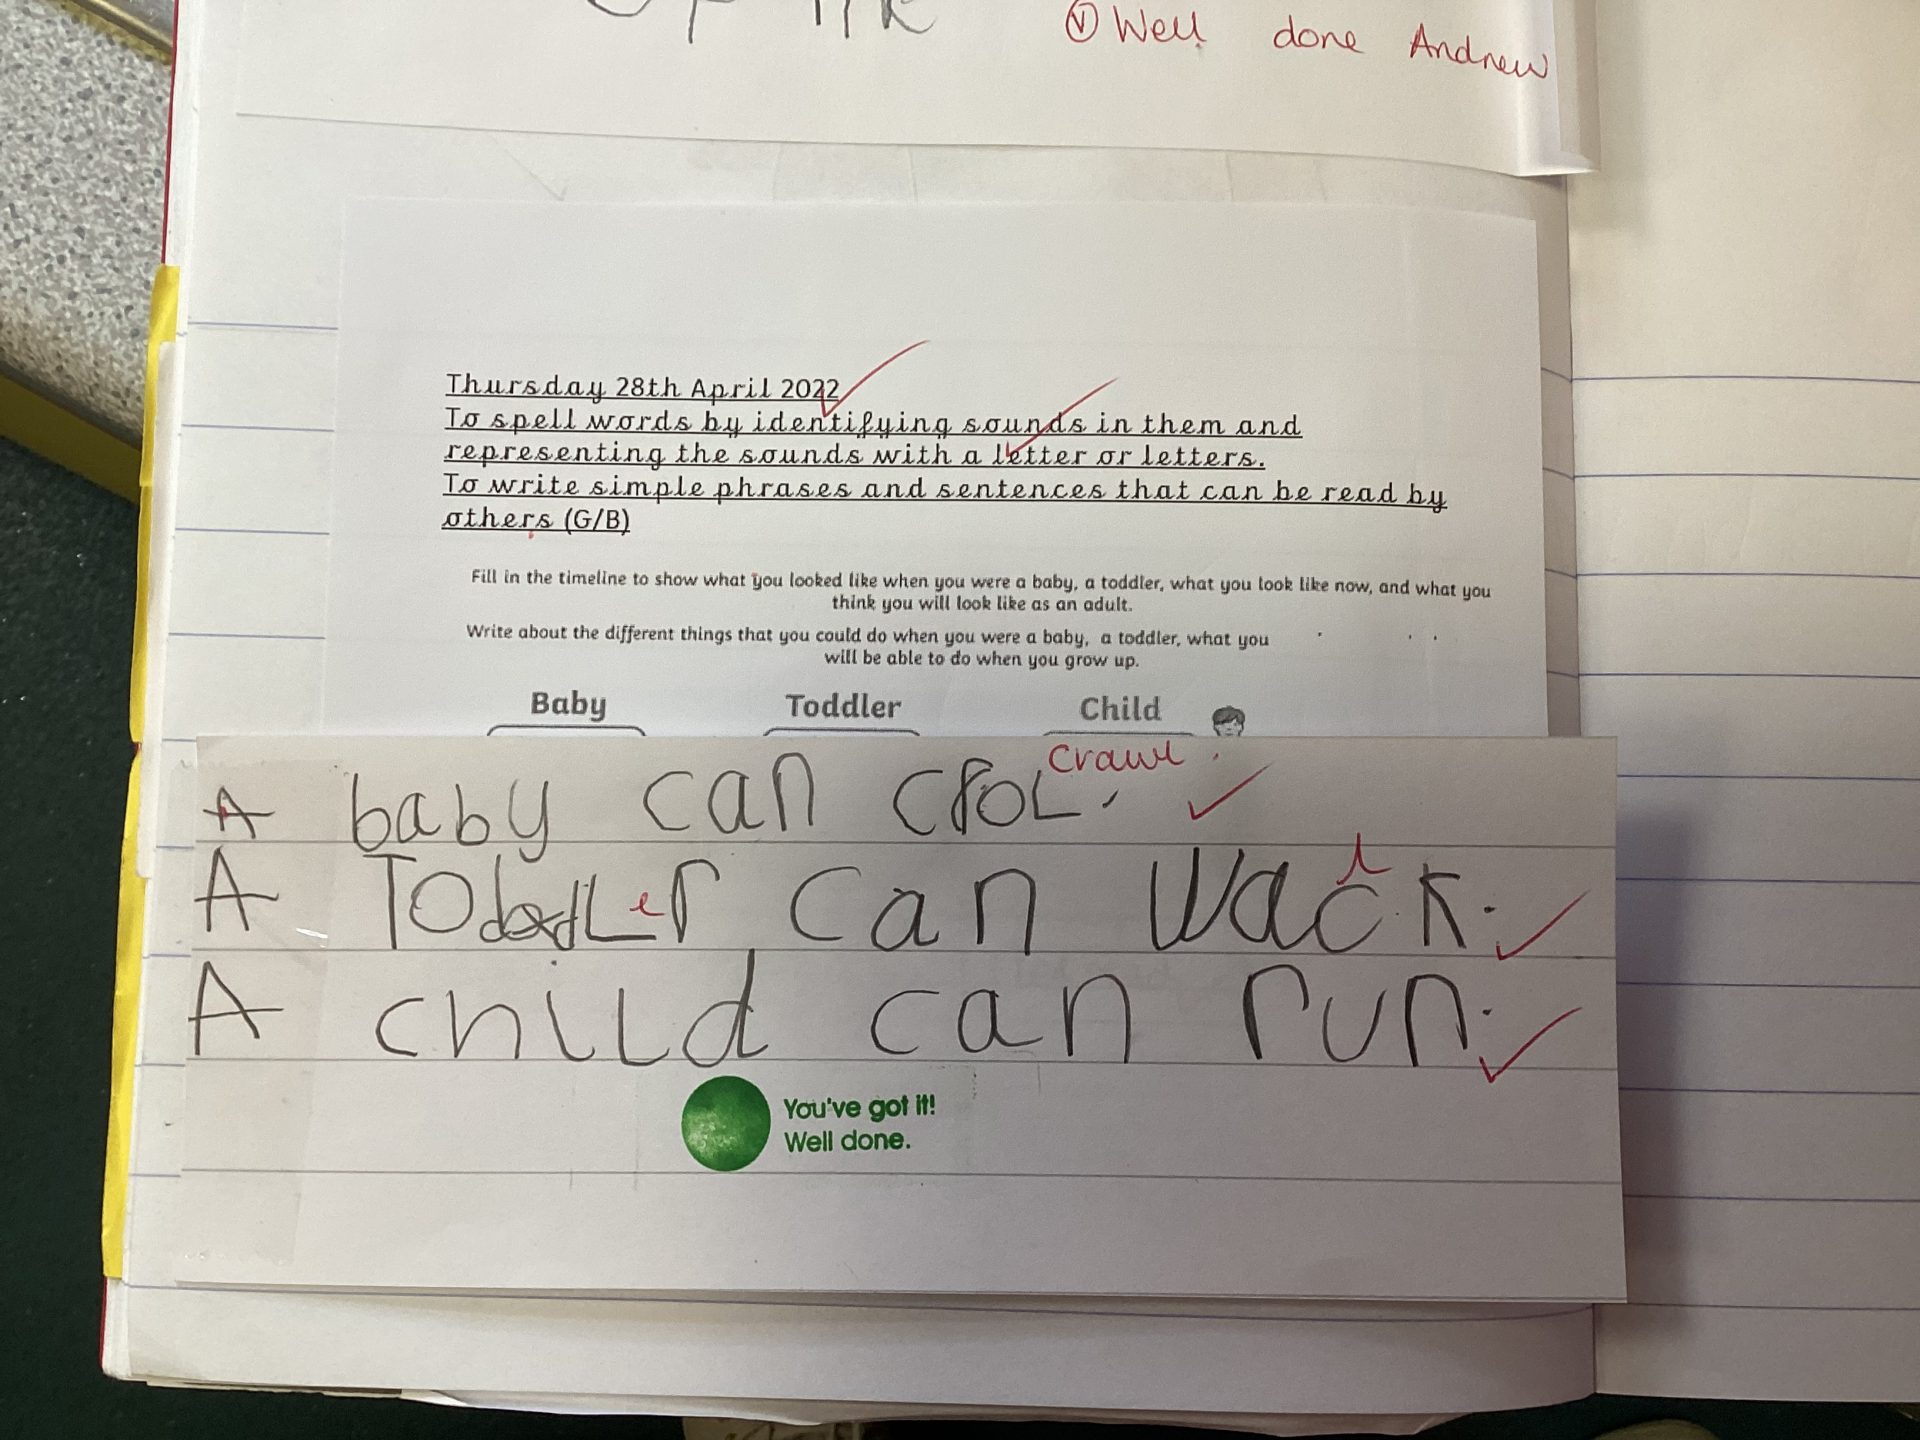 Well done Andrew
Thursday 28th April 2022
To spell words by identifying sounds in them and
representing the sounds with a letter or letters.
To write simple phrases and sentences that can be read by
others (G/B)
Fill in the timeline to show what you looked like when you were a baby, a toddler, what you look like now, and what you
think you will look like as an adult.
Write about the different things that you could do when you were a baby, a toddler, what you
will be able to do when you grow up.
Baby Toddler Child
crawl
A baby can crol.
A Toddler can wack.
A child can run.
You've got it!
Well done.